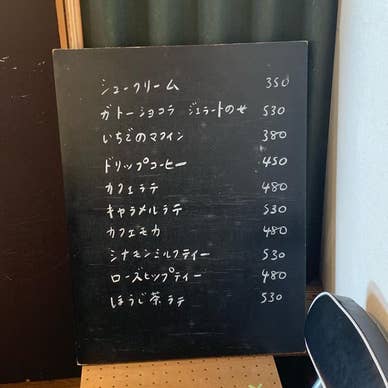 シュークリーム 350
ガトーショコラ ジェラートのせ 530
いちごのマフィン 380
ドリップコーヒー 450
カフェラテ 480
キャラメルラテ 530
カフェモカ 480
シナモンミルクティー 530
ローズヒップティー 480
ほうじ茶ラテ 530